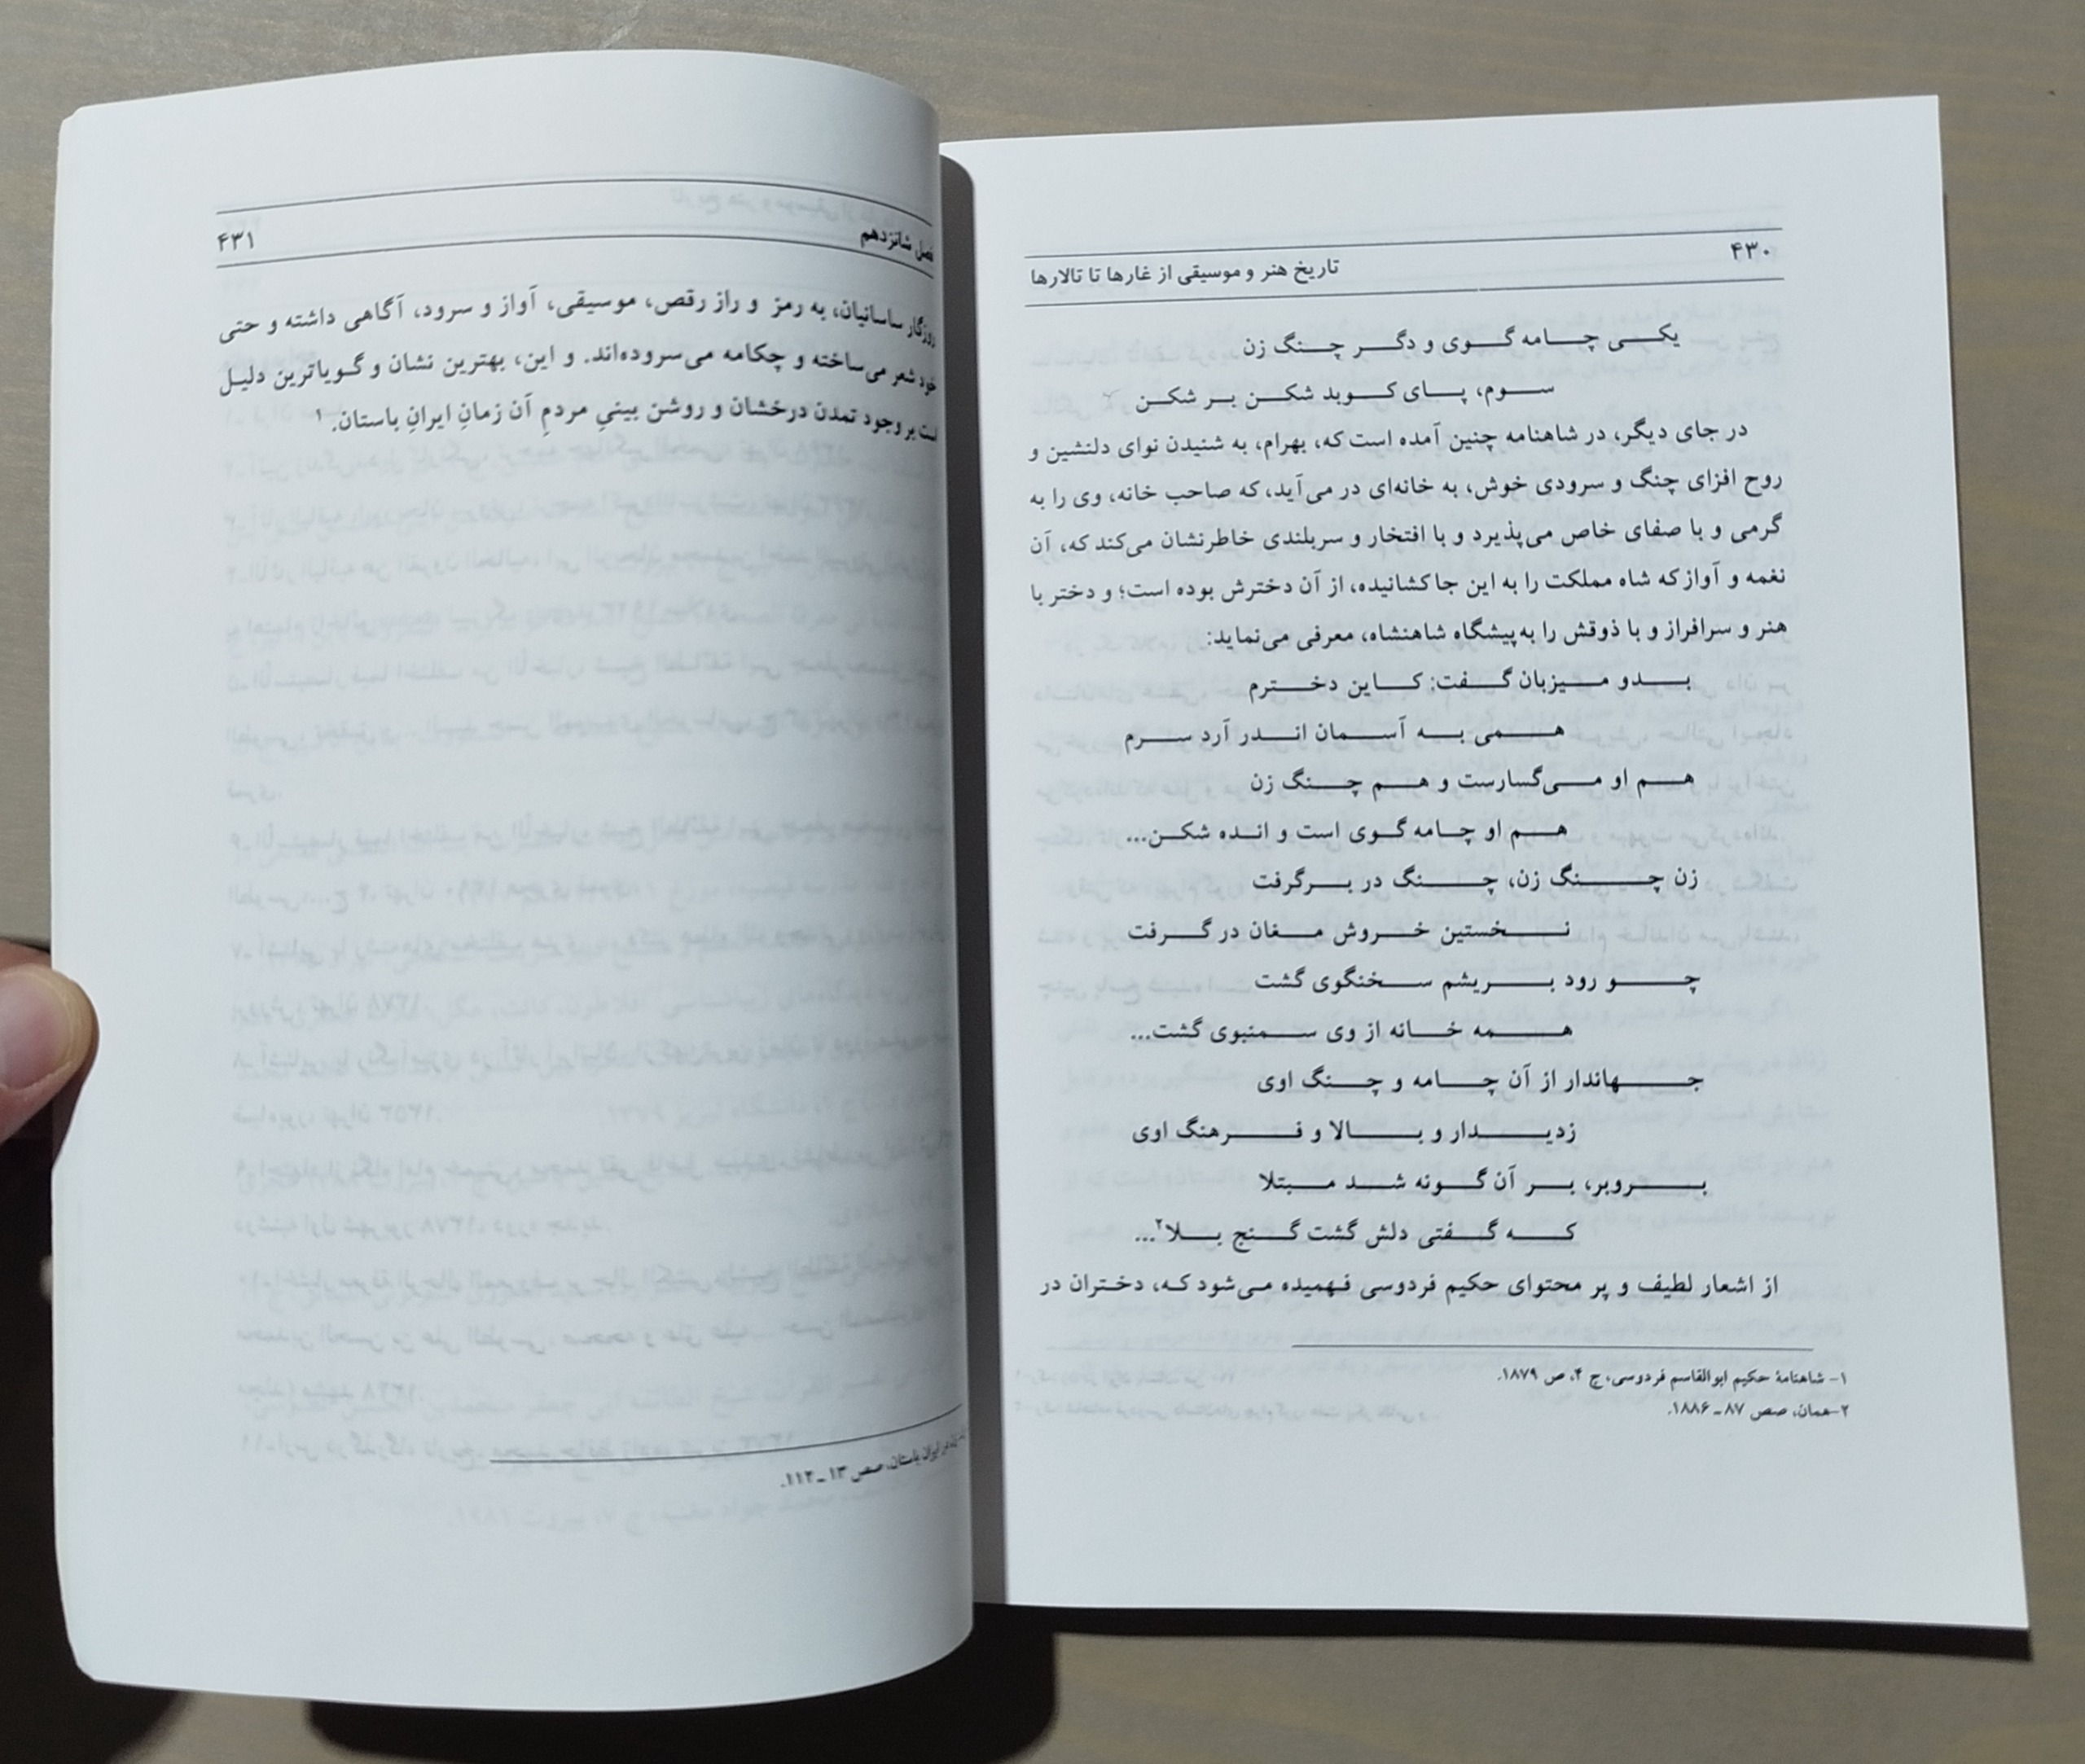 ۴۳۰
تاریخ هنر و موسیقی از غارها تا تالارها
یکی چامه گوی و دگر چنگ زن
سوم، پای کوبد شکن بر شکن
در جای دیگر، در شاهنامه چنین آمده است که، بهرام، به شنیدن نوای دلنشین و
روح افزای چنگ و سرودی خوش، به خانه‌ای در می‌آید، که صاحب خانه، وی را به
گرمی و با صفای خاص می‌پذیرد و با افتخار و سربلندی خاطرنشان می‌کند که، آن
نغمه و آواز که شاه مملکت را به این جا کشانیده، از آن دخترش بوده است؛ و دختر با
هنر و سرافراز و با ذوقش را به پیشگاه شاهنشاه، معرفی می‌نماید:
بدو میزبان گفت: کاین دخترم
همی به آسمان اندر آرد سرم
هم او می‌گسارست و هم چنگ زن
هم او چامه گوی است و انده شکن...
زن چنگ زن، چنگ در برگرفت
نخستین خروش مغان در گرفت
چو رود بریشم سخنگوی گشت
همه خانه از وی سمنبوی گشت...
جهاندار از آن چامه و چنگ اوی
زدیدار و بالا و فرهنگ اوی
بروبر، بر آن گونه شد مبتلا
که گفتی دلش گشت گنج بلا۲...
از اشعار لطیف و پر محتوای حکیم فردوسی فهمیده می‌شود که، دختران در
۱- شاهنامهٔ حکیم ابوالقاسم فردوسی، ج ۴، ص ۱۸۷۹.
۲- همان، صص ۸۷ ـ ۱۸۸۶.
فصل شانزدهم
۴۳۱
روزگار ساسانیان، به رمز و راز رقص، موسیقی، آواز و سرود، آگاهی داشته و حتی
خود شعر می‌ساخته و چکامه می‌سروده‌اند. و این، بهترین نشان و گویاترین دلیل
است بر وجود تمدن درخشان و روشن بینیِ مردمِ آن زمانِ ایرانِ باستان.۱
در ایران باستان، صص ۱۳ ـ ۱۱۲.